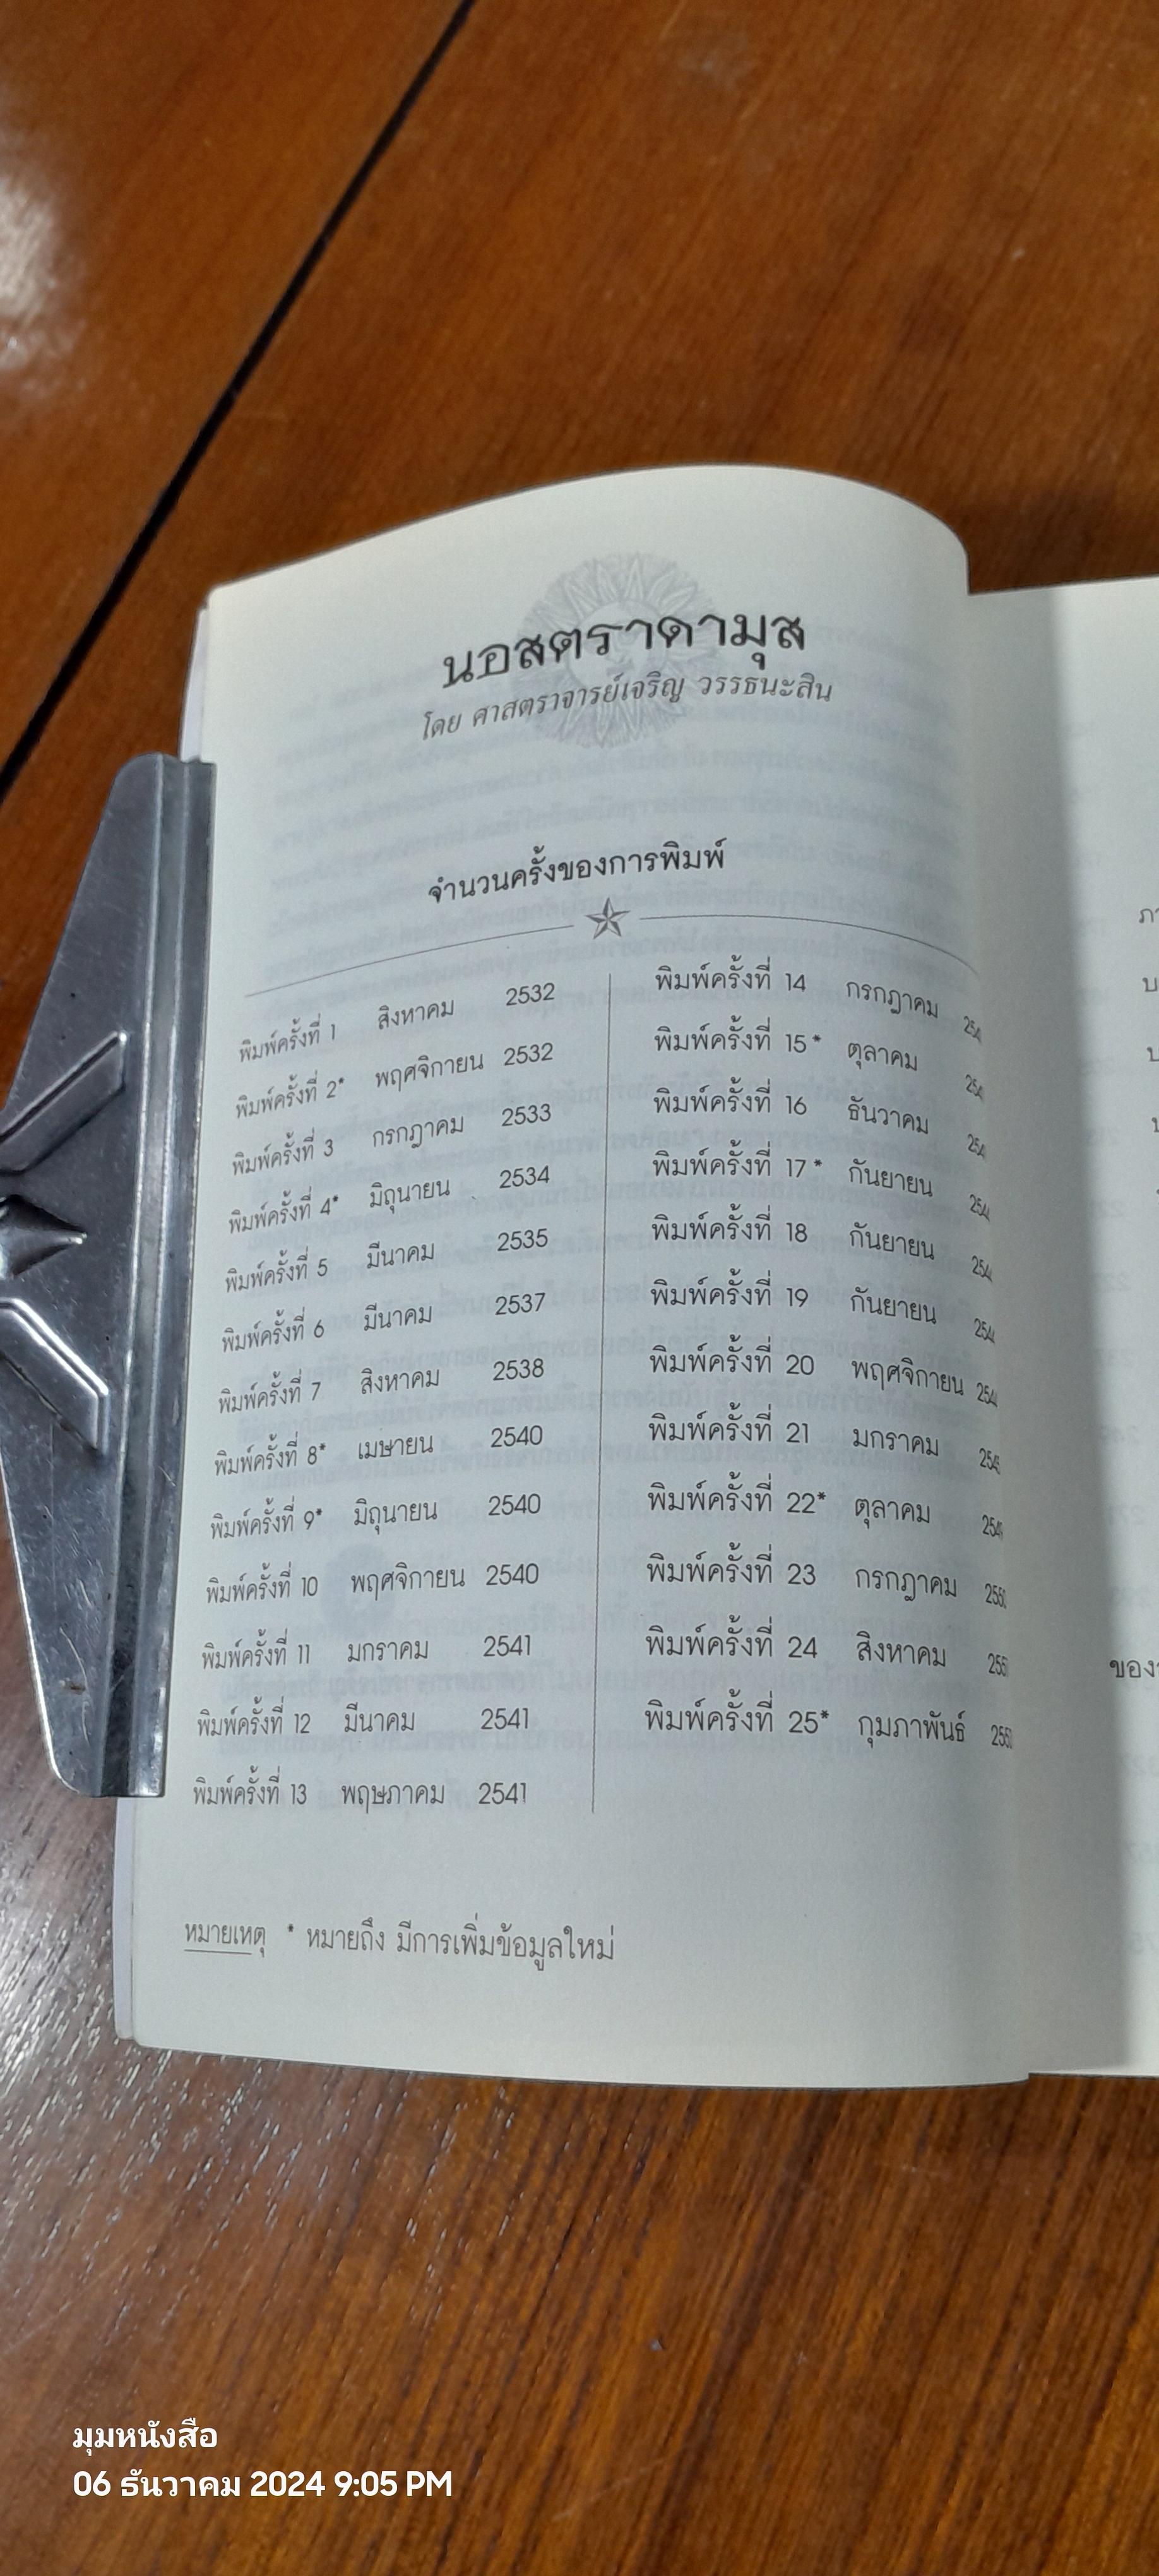 นอสตราดามุส
โดย ศาสตราจารย์เจริญ วรรธนะสิน
จำนวนครั้งของการพิมพ์
พิมพ์ครั้งที่ 1 สิงหาคม 2532
พิมพ์ครั้งที่ 2* พฤศจิกายน 2532
พิมพ์ครั้งที่ 3 กรกฎาคม 2533
พิมพ์ครั้งที่ 4* มิถุนายน 2534
พิมพ์ครั้งที่ 5 มีนาคม 2535
พิมพ์ครั้งที่ 6 มีนาคม 2537
พิมพ์ครั้งที่ 7 สิงหาคม 2538
พิมพ์ครั้งที่ 8* เมษายน 2540
พิมพ์ครั้งที่ 9* มิถุนายน 2540
พิมพ์ครั้งที่ 10 พฤศจิกายน 2540
พิมพ์ครั้งที่ 11 มกราคม 2541
พิมพ์ครั้งที่ 12 มีนาคม 2541
พิมพ์ครั้งที่ 13 พฤษภาคม 2541
พิมพ์ครั้งที่ 14 กรกฎาคม
พิมพ์ครั้งที่ 15* ตุลาคม
พิมพ์ครั้งที่ 16 ธันวาคม
พิมพ์ครั้งที่ 17* กันยายน
พิมพ์ครั้งที่ 18 กันยายน
พิมพ์ครั้งที่ 19 กันยายน
พิมพ์ครั้งที่ 20 พฤศจิกายน
พิมพ์ครั้งที่ 21 มกราคม
พิมพ์ครั้งที่ 22* ตุลาคม
พิมพ์ครั้งที่ 23 กรกฎาคม
พิมพ์ครั้งที่ 24 สิงหาคม
พิมพ์ครั้งที่ 25* กุมภาพันธ์
หมายเหตุ * หมายถึง มีการเพิ่มข้อมูลใหม่
มุมหนังสือ
06 ธันวาคม 2024 9:05 PM